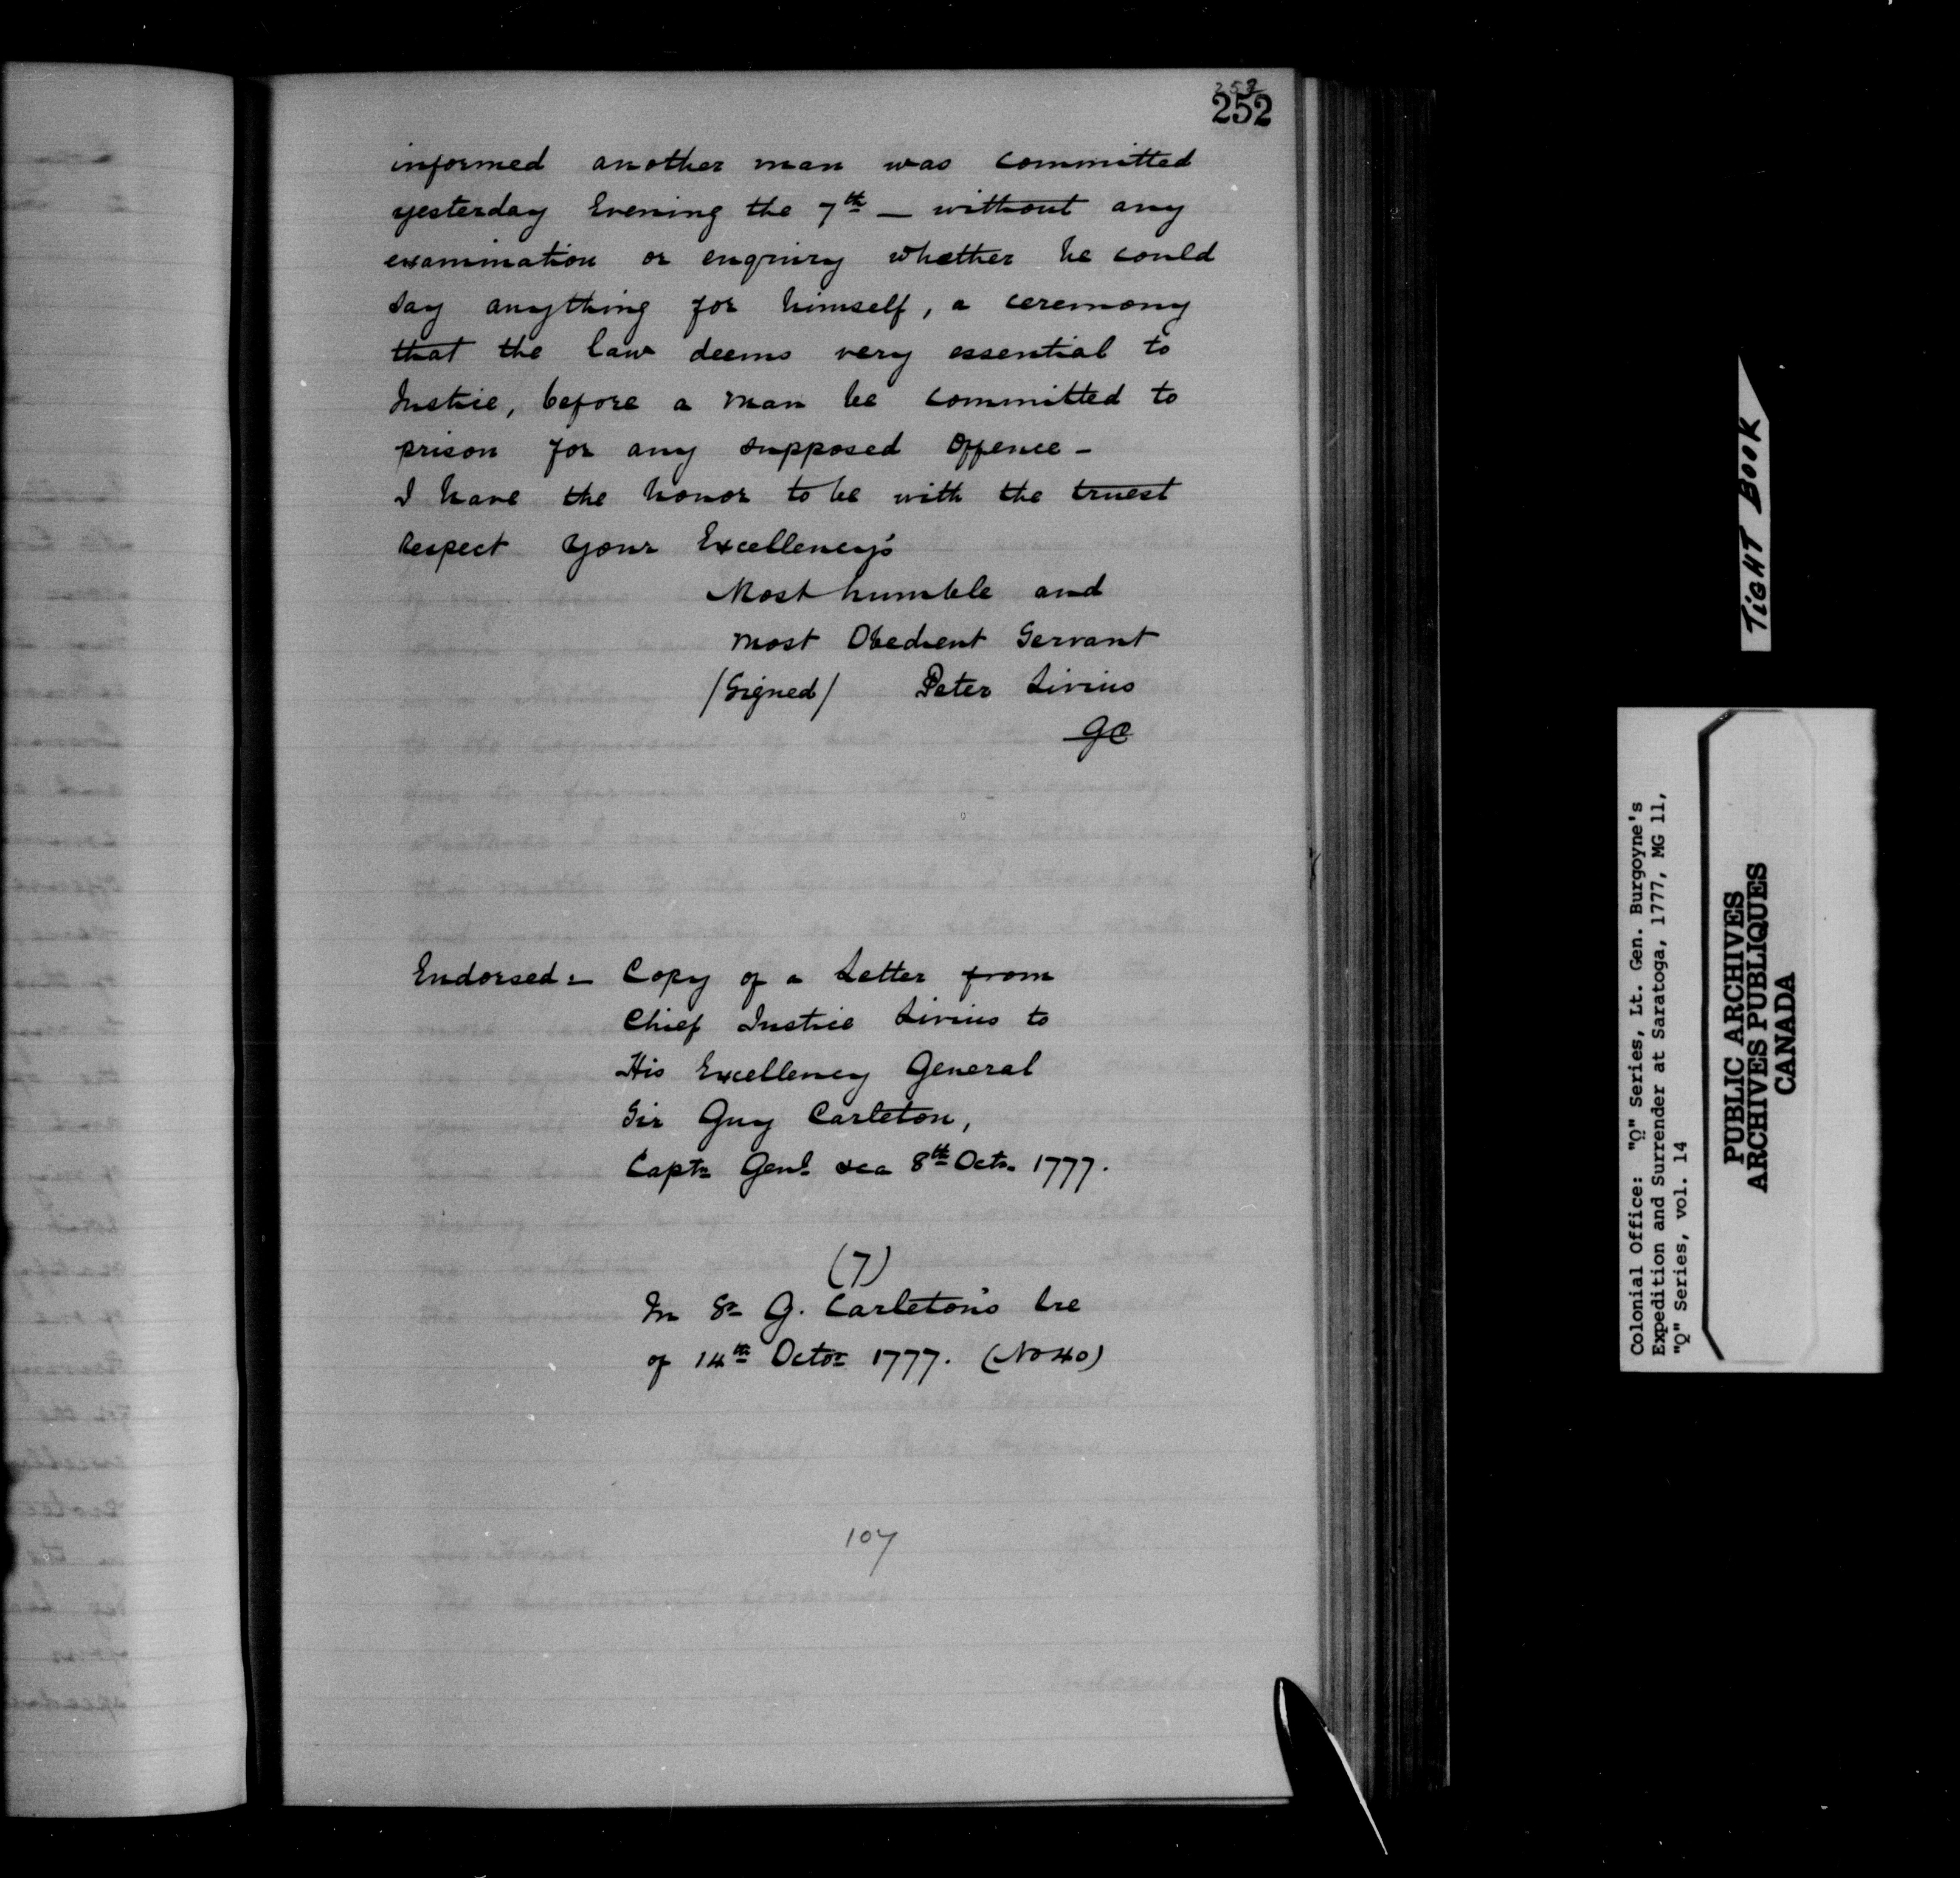 253
252
informed another man was committed
yesterday Evening the 7th — without any
examination or enquiry whether he could
say anything for himself, a ceremony
that the law deems very essential to
Justice, before a man be committed to
prison for any supposed Offence —
I have the honor to be with the truest
respect Your Excellency's
Most humble and
most Obedient Servant
/Signed/ Peter Livius
GC
Endorsed:— Copy of a Letter from
Chief Justice Livius to
His Excellency General
Sir Guy Carleton,
Captn Genl &ca 8th Octr 1777.
(7)
In Sr G. Carleton's lre
of 14th Octor 1777. (No 40)
107
TIGHT BOOK
Colonial Office: "Q" Series, Lt. Gen. Burgoyne's
Expedition and Surrender at Saratoga, 1777, MG 11,
"Q" Series, vol. 14
PUBLIC ARCHIVES
ARCHIVES PUBLIQUES
CANADA